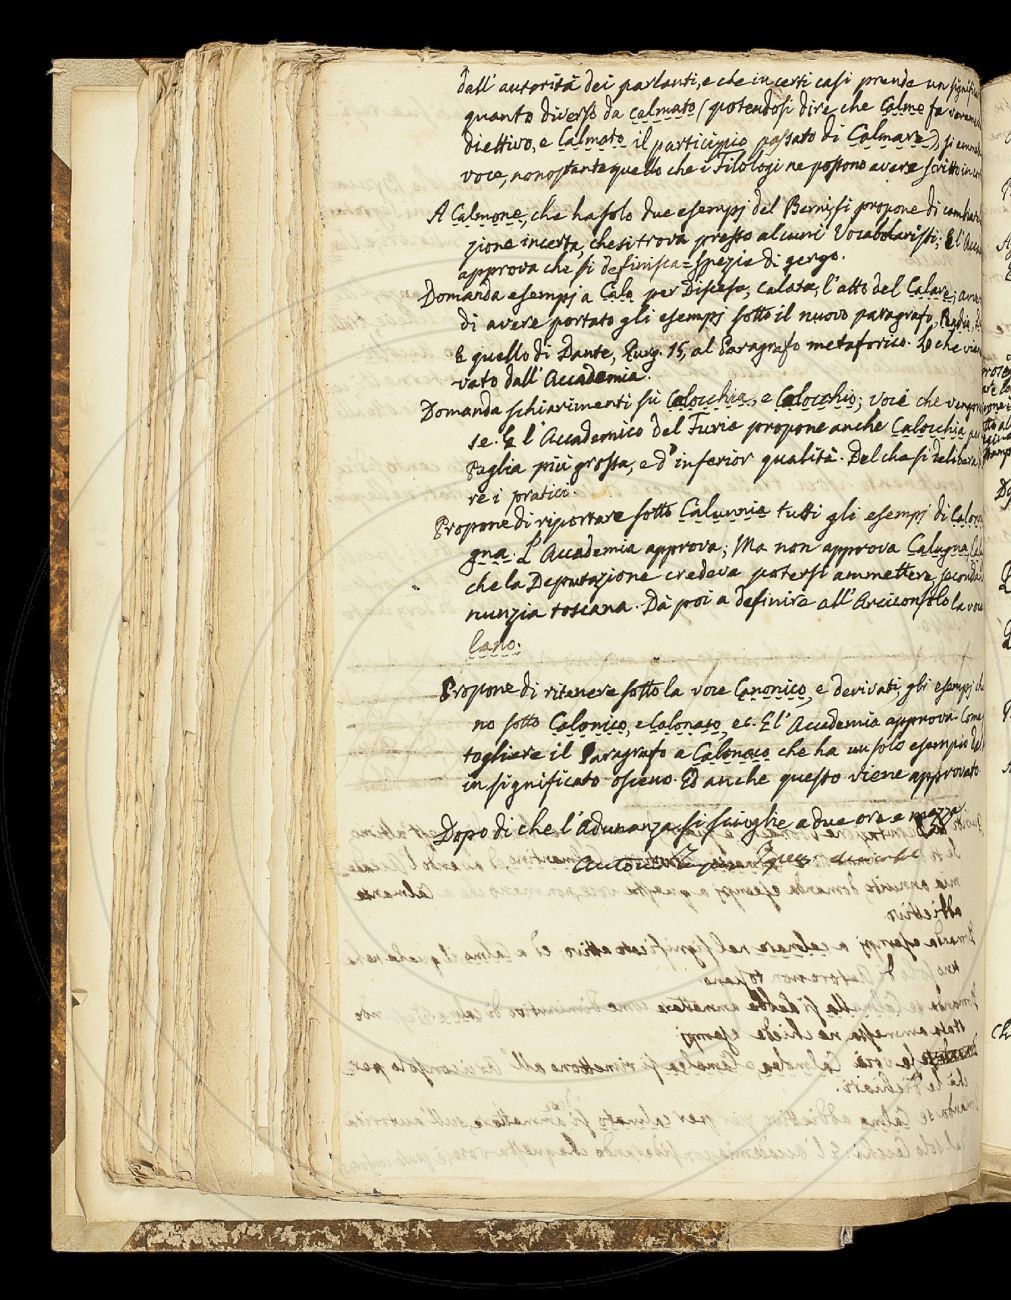 dall'autorità dei parlanti, e che in certi casi prende un signific
quanto diverso da calmato (potendosi dire che Calmo fa veram
diettivo, e Calmato il participio passato di Calmare) si amm
voce, nonostante quello che i Filologi ne possono avere scritto in con
A Calmone, che ha solo due esempj del Berni, si propone di cambiar
zione incerta, che si trova presso alcuni Vocabolaristi; E l'Acca
approva che si definisca = spezie di gergo.
Domanda esempj a Cala per Discesa, calata, l'atto del Calare;
di avere portato gli esempj sotto il nuovo paragrafo,
E quello di Dante, Purg. 15, al Paragrafo metaforico. Il che vien
vato dall'Accademia.
Domanda schiarimenti su Calocchia, e Calocchio; voci che vengon
se. E l'Accademico del Furia propone anche Calocchia per
Paglia più grossa, e d'inferior qualità. Del che si delibera
re i pratici.
Propone di riportare sotto Calunnia tutti gli esempj di Calon
gna. L'Accademia approva; Ma non approva Calugna,
che la Deputazione credeva potersi ammettere, secondo
nunzia toscana. Dà poi a definire all'Arciconsolo la voc
lano.
Propone di ritenere sotto la voce Canonico, e derivati, gli esempj ch
no sotto Calonico, e Calonaco, ec. E l'Accademia approva. Come
togliere il Paragrafo a Calonaco che ha un solo esempio del
in significato osceno. Ed anche questo viene approvato.
Dopo di che l'Adunanza si scioglie a due ore e mezza.